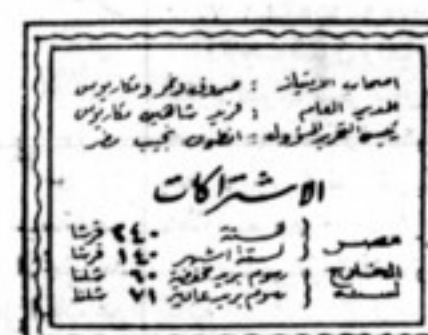 اصحاب الامتياز : صروف ونمر ومكاريوس
المدير العام : فريد شاهين مكاريوس
رئيس التحرير المسؤول : انطون نجيب مطر
الاشتراكات
مصر { لسنة ٢٤٠ قرشا
لستة اشهر ١٤٠ قرشا
الخارج { رسوم بريد مخفضة ٦٠ شلنا
لسنة رسوم بريد عالية ٧١ شلنا